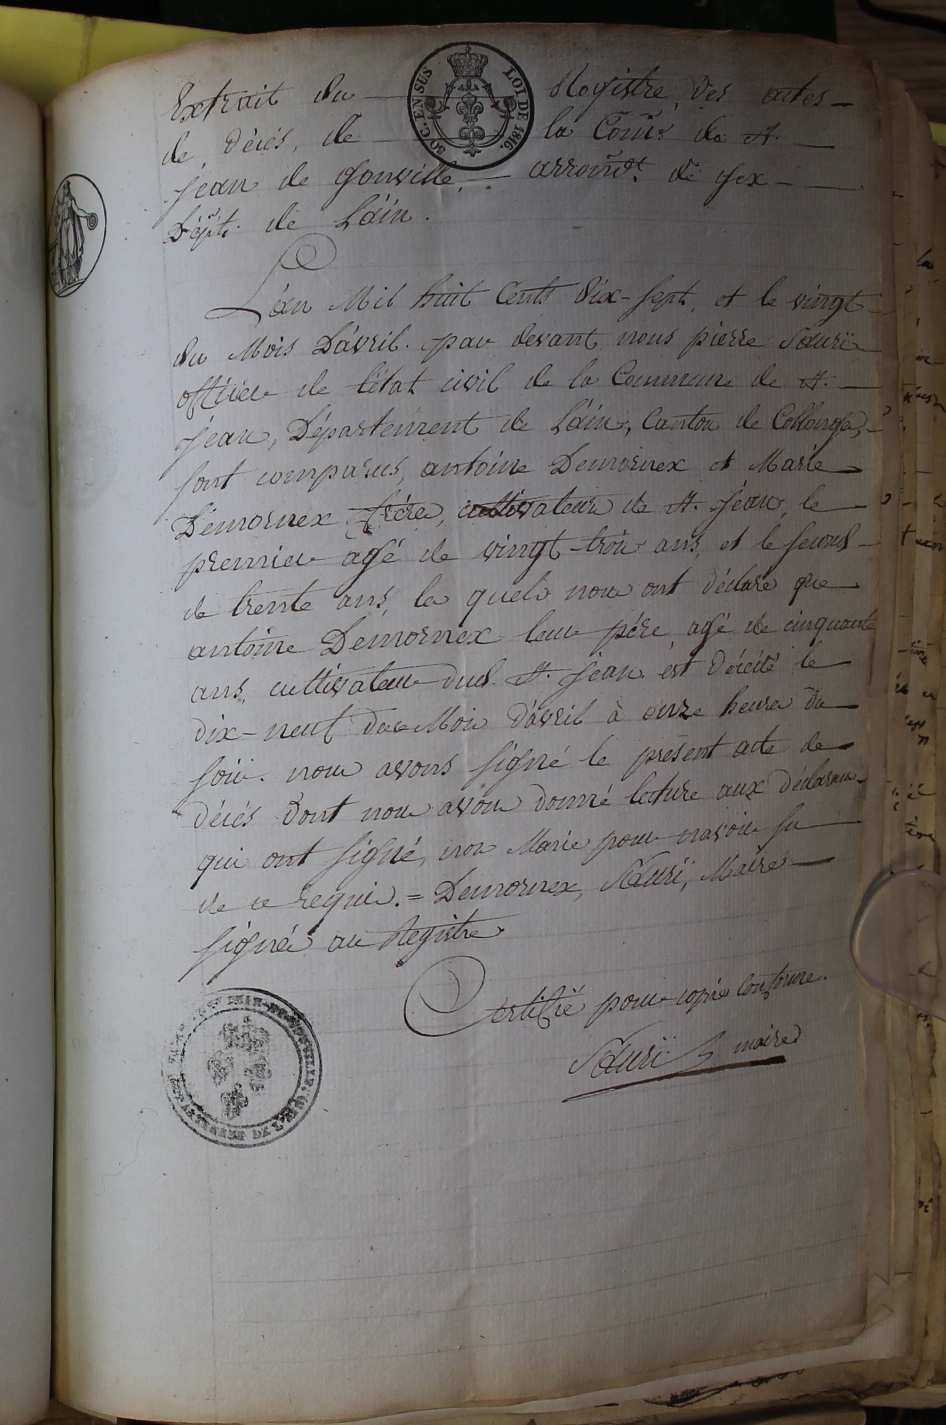 Extrait du — Registre des actes —
50 C. EN SUS LOI DE 1816.
de décès, de — la Comᵉ de St. —
jean de gonville, — arrondᵗ. de gex —
Dépt. de L'ain.
L'an Mil huit Cents dix-sept, et le vingt
du Mois D'avril. par devant nous pierre Sauri
officier de l'état civil de la Commune de St. —
jean, Département de L'ain, Canton de Collonge, —
sont comparus, antoine Demornex et Marie
Demornex frére, cultivateur de St. jean, le
premier agé de vingt-troix ans, et le second —
de trente ans, le quels nous ont déclaré que
antoine Demornex leur pére agé de cinquante
ans, cultivateur dud. St. jean est décédé le
dix-neuf du Mois d'avril à onze heure du
soir. nous avons signé le présent acte de
décés dont nous avon donné lecture aux déclaran
qui ont signé, non Marie pour navoir su
de ce requi. = Demornex, Sauri, Maire —
signé au Registre
Certifié pour copie conforme.
Sauri maire